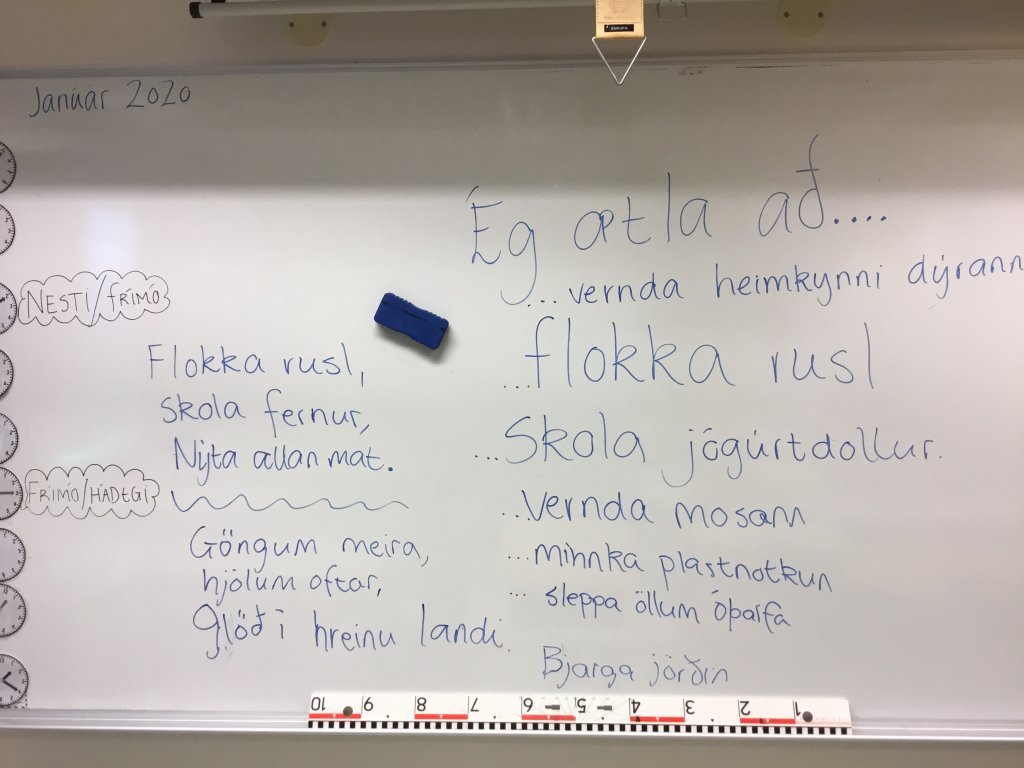 EUROPA
Janúar 2020
Ég ætla að....
...vernda heimkynni dýrann
...flokka rusl
...Skola jógúrtdollur.
...Vernda mosann
...minnka plastnotkun
... sleppa öllum óþarfa
Bjarga jörðin
NESTI/FRÍMÓ
Flokka rusl,
skola fernur,
Nýta allan mat.
FRÍMÓ/HÁDEGI
Göngum meira,
hjólum oftar,
glöð í hreinu landi.
10 9 8 7 6 5 4 3 2 1